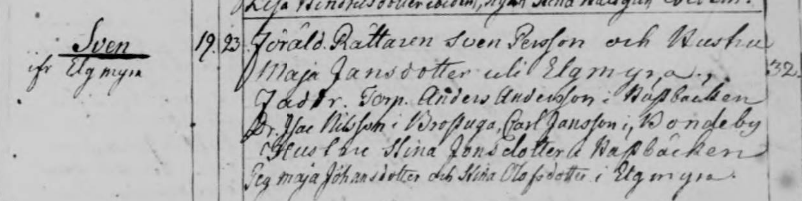 Sven
ifr Elgmyra
19. 23. Föräld. Rättaren Sven Persson och Hustru
Maja Jansdotter uti Elgmyra. 32.
Faddr. Torp. Anders Andersson i Hassbäcken
Dr. Isac Nilsson i Brostuga, Carl Jansson i Bondeby
Hustru Stina Jonsdotter i Hassbäcken
Pig Maja Johansdotter och Stina Olofsdotter i Elgmyra.